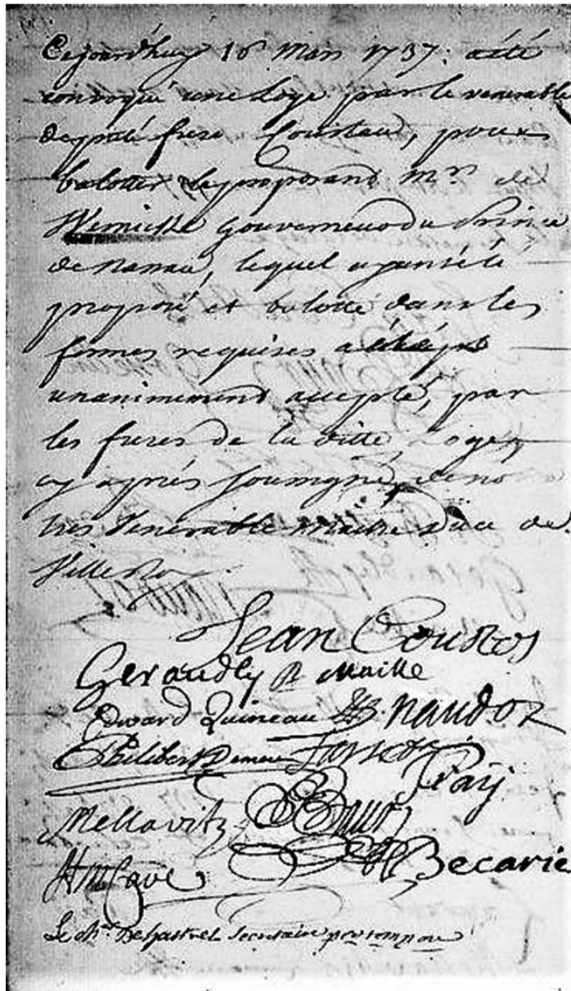 Cejourd'huy 16 Mars 1737. a été
convoqué une Loge par le venerable
deputé frere Coustau, pour
balotter le proposant Mr. de
Wernicke gouverneur du Prince
de Nassau, lequel ayant été
proposé et balotté dans les
formes requises a été
unanimement accepté, par
les freres de la ditte Loge
cy aprés soussigné, de no
tres Venerable Maitre Duc de
Villeroy.
Jean Coustos
Geraudly Maille
Edward Quineau Naudot
Philibert
Pray
Mellavitz Baur
Becarie
Le Chr. Secretaire